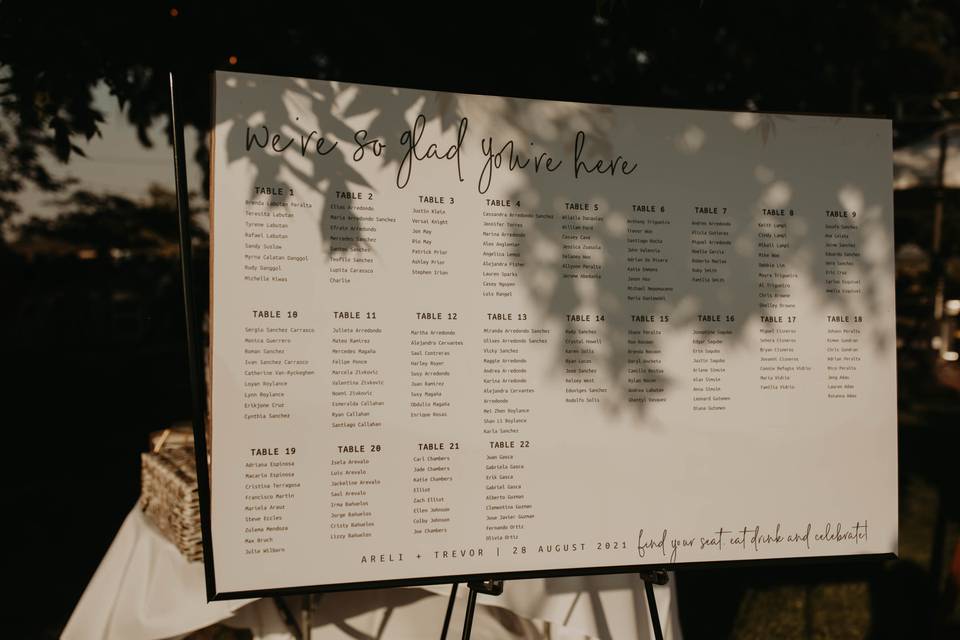 we're so glad you're here
TABLE 1
Brenda Labutan Peralta
Teresita Labutan
Tyrene Labutan
Rafael Labutan
Sandy Suslow
Myrne Calatan Danggol
Rudy Danggol
Michelle Kiwas
TABLE 2
Elias Arredondo
Maria Arredondo Sanchez
Efrain Arredondo
Mercedes Sanchez
Santos Sanchez
Teofilo Sanchez
Lupita Carassco
Charlie
TABLE 3
Justin Klein
Versai Knight
Jon May
Pie May
Patrick Prior
Ashley Prior
Stephen Irion
TABLE 4
Cassandra Arredondo Sanchez
Jennifer Torres
Marina Arredondo
Alex Anglemier
Angelica Lemus
Alejandra Fisher
Lauren Sparks
Casey Nguyen
Luis Rangel
TABLE 5
William Ford
Cassey Cave
Jessica Zuazula
Delaney Woo
Allyson Peralta
TABLE 6
Anthony Trigueiro
Trevor Woo
Santiago Rocha
John Valencia
Adrian De Rivera
Katie Emmons
Michael Nepomuceno
TABLE 7
Andres Arredondo
Alicia Gutierez
Miguel Arredondo
Noelle Garcia
Roberto Macias
Ruby Smith
Familia Smith
TABLE 8
Keith Lampi
Cindy Lampi
Mikell Lampi
Mike Woo
Debbie Lin
Mayra Trigueiro
Al Trigueiro
Chris Browne
Shelley Browne
TABLE 9
Jaime Sanchez
Eduardo Sanchez
Vera Sanchez
Eric Cruz
Carlos Esquivel
Amelia Esquivel
TABLE 10
Sergio Sanchez Carrasco
Monica Guerrero
Roman Sanchez
Ivan Sanchez Carrasco
Catherine Van-Ryckeghen
Loyan Roylance
Lynn Roylance
Erikjune Cruz
Cynthia Sanchez
TABLE 11
Julieta Arredondo
Mateo Ramirez
Mercedes Magaña
Felipe Ponce
Marcela Zivkovic
Valentina Zivkovic
Noemi Zivkovic
Esmeralda Callahan
Ryan Callahan
Santiago Callahan
TABLE 12
Martha Arredondo
Alejandra Cervantes
Saul Contreras
Harley Royer
Susy Arredondo
Juan Ramirez
Susy Magaña
Obdulio Magaña
Enrique Rosas
TABLE 13
Miranda Arredondo Sanchez
Ulises Arredondo Sanchez
Vicky Sanchez
Maggie Arredondo
Andrea Arredondo
Karina Arredondo
Alejandra Cervantes
Arredondo
Mei Zhen Roylance
Shan Li Roylance
Karla Sanchez
TABLE 14
Rudy Sanchez
Crystal Howell
Karen Solis
Ryan Lucas
Jose Sanchez
Kelsey West
Eduviges Sanchez
Rodolfo Solis
TABLE 15
Shane Peralta
Ron Noosen
Brenda Noosen
Daryl Buckets
Camille Bostus
Dylan Nolan
Andrea Labutan
Shantyl Vasquez
TABLE 16
Josephine Sagube
Edgar Sagube
Erin Sagube
Justin Sagube
Arlene Simsim
Alan Simsim
Anna Simsim
Leonard Gutemen
Diana Gutemen
TABLE 17
Miguel Cisneros
Senera Cisneros
Bryan Cisneros
Jovanni Cisneros
Connie Refugio Vidrio
Maria Vidrio
Familia Vidrio
TABLE 18
Johann Peralta
Kimon Gundran
Chris Gundran
Adrian Peralta
Rico Peralta
Jong Adao
Lauren Adao
Roxanna Adao
TABLE 19
Adriana Espinosa
Macario Espinosa
Cristina Terragosa
Francisco Martin
Mariela Arauz
Steve Eccles
Zulema Mendoza
Max Bruch
Julie Wilborn
TABLE 20
Isela Arevalo
Luis Arevalo
Jackeline Arevalo
Saul Arevalo
Irma Bañuelos
Jorge Bañuelos
Cristy Bañuelos
Lizzy Bañuelos
TABLE 21
Carl Chambers
Jade Chambers
Katie Chambers
Elliot
Zach Elliot
Ellen Johnson
Colby Johnson
Joe Chambers
TABLE 22
Juan Gasca
Gabriela Gasca
Erik Gasca
Gabriel Gasca
Alberto Guzman
Clementina Guzman
Jose Javier Guzman
Fernando Ortiz
Olivia Ortiz
ARELI + TREVOR | 28 AUGUST 2021 find your seat. eat drink and celebrate!